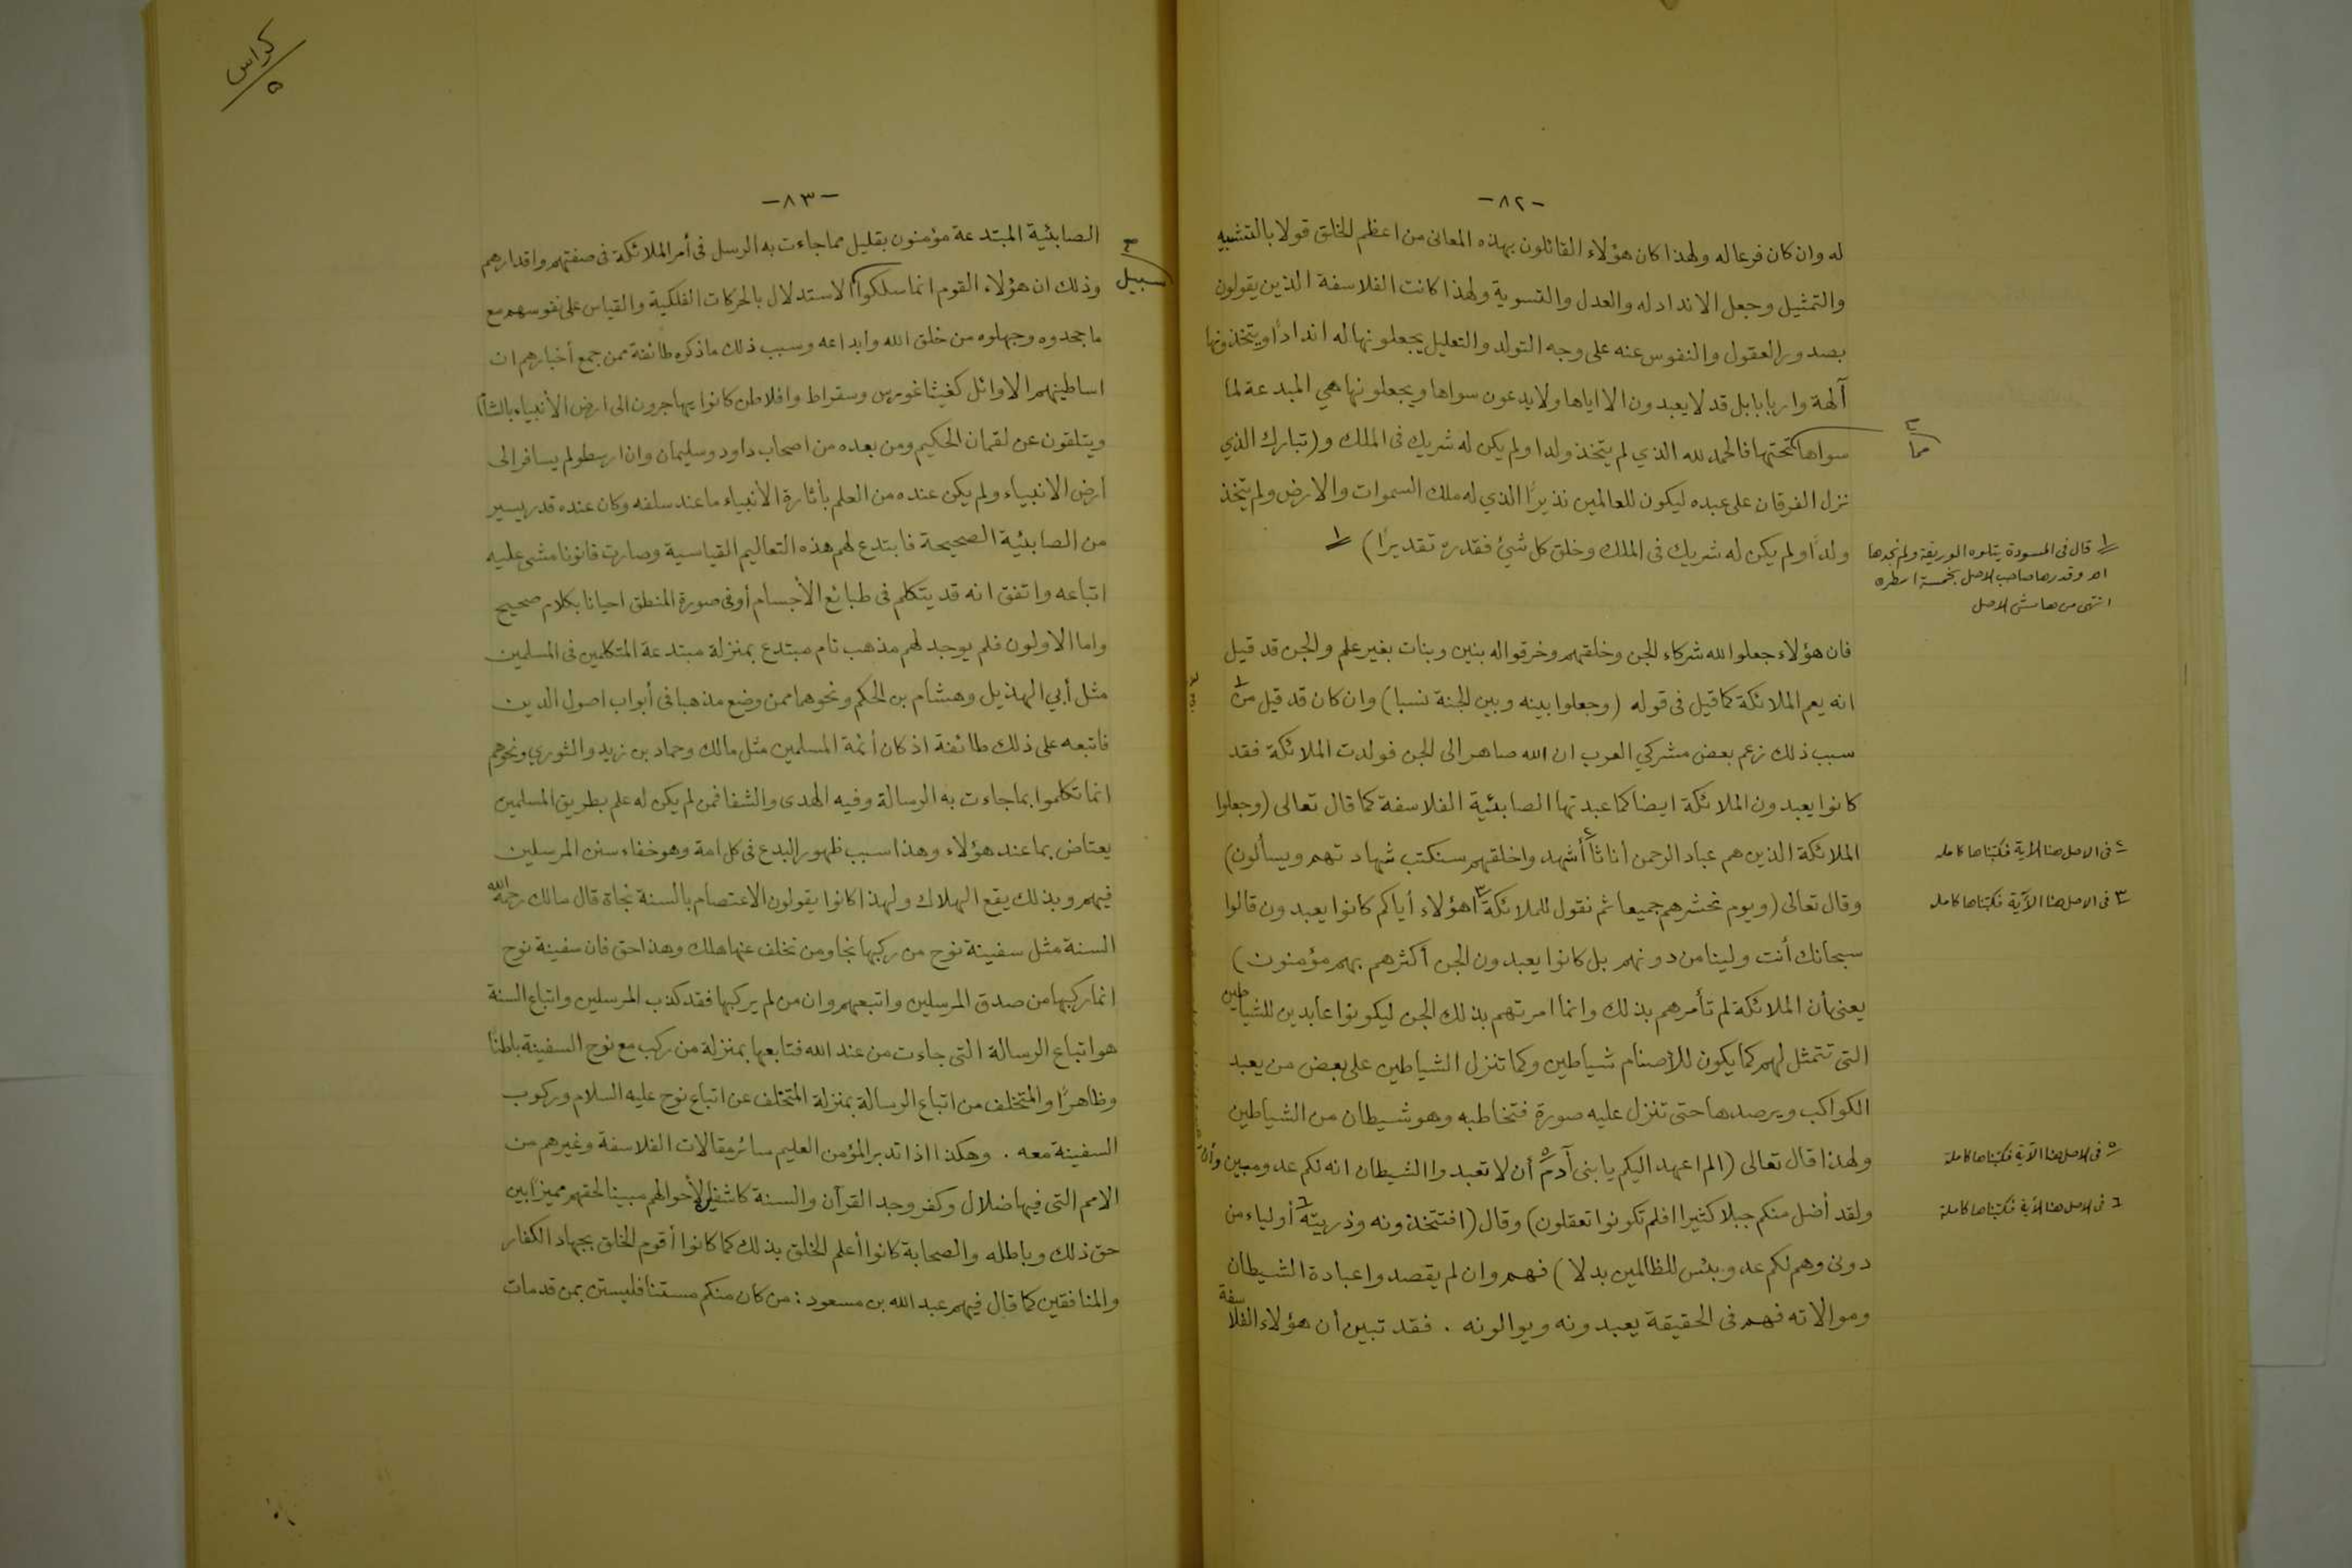 -٨٢-
له وان كان فرعا له ولهذا كان هؤلاء القائلون بهذه المعانى من اعظم الخلق قولا بالتشبيه
والتمثيل وجعل الاندادله والعدل والتسوية ولهذا كانت الفلاسفة الذين يقولون
بصدور العقول والنفوس عنه على وجه التولد والتعليل يجعلونها له اندادًا ويتخذونها
آلهة واربابا بل قد لا يعبدون الا اياها ولا يدعون سواها ويجعلونها هي المبدعة لما
سواها مما تحتها فالحمد لله الذي لم يتخذ ولدا ولم يكن له شريك فى الملك و(تبارك الذي
نزل الفرقان على عبده ليكون للعالمين نذيرًا الذي له ملك السموات والارض ولم يتخذ
ولدًا ولم يكن له شريك فى الملك وخلق كل شئ فقدره تقديرًا) ١
١ قال فى المسودة يتلوه الوريقة ولم نجدها
اه وقدرها صاحب الاصل بخمسة اسطره
انتهى من هامش الاصل
فان هؤلاء جعلوا لله شركاء الجن وخلقهم وخرقوا له بنين وبنات بغير علم والجن قد قيل
انه يعم الملائكة كما قيل فى قوله (وجعلوا بينه وبين الجنة نسبا) وان كان قد قيل من
سبب ذلك زعم بعض مشركي العرب ان الله صاهر الى الجن فولدت الملائكة فقد
كانوا يعبدون الملائكة ايضا كما عبدتها الصابئية الفلاسفة كما قال تعالى (وجعلوا
الملائكة الذين هم عباد الرحمن اناثًا أشهدوا خلقهم ستكتب شهادتهم ويسألون)
٤ فى الاصل هنا الآية فكتبناها كامله
وقال تعالى (ويوم نحشرهم جميعا ثم نقول للملائكة٣ اهؤلاء أياكم كانوا يعبدون قالوا
٣ فى الاصل هنا الآية فكتبناها كامله
سبحانك أنت ولينا من دونهم بل كانوا يعبدون الجن أكثرهم بهم مؤمنون)
يعنى أن الملائكة لم تأمرهم بذلك وانما امرتهم بذلك الجن ليكونوا عابدين للشياطين
التى تتمثل لهم كما يكون للأصنام شياطين وكما تنزل الشياطين على بعض من يعبد
الكواكب ويرصدها حتى تنزل عليه صورة فتخاطبه وهو شيطان من الشياطين
ولهذا قال تعالى (الم اعهد اليكم يا بنى آدم٥ أن لا تعبدوا الشيطان انه لكم عدو مبين وأن
٥ فى الاصل هنا الآية فكتبناها كاملة
ولقد أضل منكم جبلا كثيرا افلم تكونوا تعقلون) وقال (افتتخذونه وذريته٦ أولياء من
٦ فى الاصل هنا الآية فكتبناها كاملة
دونى وهم لكم عدو بئس للظالمين بدلا) فهم وان لم يقصدوا عبادة الشيطان
وموالاته فهم فى الحقيقة يعبدونه ويوالونه . فقد تبين أن هؤلاء الفلاسفة
كراس
٥
-٨٣-
الصابئية المبتدعة مؤمنون بقليل مما جاءت به الرسل فى أمر الملائكة فى صفتهم واقدارهم
وذلك ان هؤلاء القوم انما سلكوا سبيل الاستدلال بالحركات الفلكية والقياس على نفوسهم مع
ما جحدوه وجهلوه من خلق الله وابداعه وسبب ذلك ما ذكره طائفة ممن جمع أخبارهم ان
اساطينهم الاوائل كفيثاغورس وسقراط وافلاطن كانوا يهاجرون الى ارض الأنبياء بالشام
ويتلقون عن لقمان الحكيم ومن بعده من اصحاب داود وسليمان وان ارسطو لم يسافر الى
أرض الانبياء ولم يكن عنده من العلم بأثارة الأنبياء ما عند سلفه وكان عنده قدر يسير
من الصابئية الصحيحة فابتدع لهم هذه التعاليم القياسية وصارت قانونا مشى عليه
اتباعه واتفق انه قد يتكلم فى طبائع الأجسام أو فى صورة المنطق احيانا بكلام صحيح
واما الاولون فلم يوجد لهم مذهب تام مبتدع بمنزلة مبتدعة المتكلمين فى المسلمين
مثل أبي الهذيل وهشام بن الحكم ونحوهما ممن وضع مذهبا فى أبواب اصول الدين
فاتبعه على ذلك طائفة اذ كان أئمة المسلمين مثل مالك وحماد بن زيد والثوري ونحوهم
انما تكلموا بما جاءت به الرسالة وفيه الهدى والشفا فمن لم يكن له علم بطريق المسلمين
يعتاض بما عند هؤلاء وهذا سبب ظهور البدع فى كل امة وهو خفاء سنن المرسلين
فيهم وبذلك يقع الهلاك ولهذا كانوا يقولون الاعتصام بالسنة نجاة قال مالك رحمه الله
السنة مثل سفينة نوح من ركبها نجا ومن تخلف عنها هلك وهذا حق فان سفينة نوح
انما ركبها من صدق المرسلين واتبعهم وان من لم يركبها فقد كذب المرسلين واتباع السنة
هو اتباع الرسالة التى جاءت من عند الله فتابعها بمنزلة من ركب مع نوح السفينة باطنًا
وظاهرًا والمتخلف من اتباع الرسالة بمنزلة المتخلف عن اتباع نوح عليه السلام وركوب
السفينة معه . وهكذا اذا تدبر المؤمن العليم سائر مقالات الفلاسفة وغيرهم من
الامم التى فيها ضلال وكفر وجد القرآن والسنة كاشفا لأحوالهم مبينا لحقهم مميزًا بين
حق ذلك وباطله والصحابة كانوا أعلم الخلق بذلك كما كانوا أقوم الخلق بجهاد الكفار
والمنافقين كما قال فيهم عبد الله بن مسعود : من كان منكم مستنا فليستن بمن قد مات